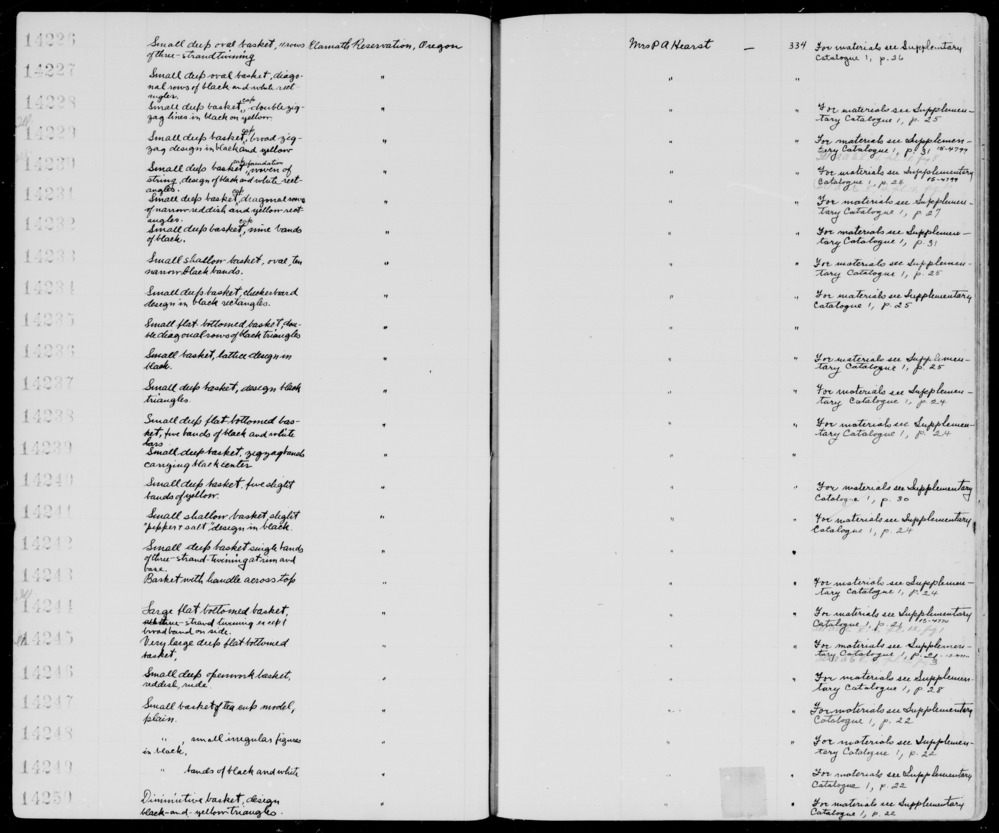 14226 Small deep oval basket, rows Klamath Reservation, Oregon Mrs P A Hearst — 334 For materials see Supplementary
of three-strand twining Catalogue 1, p. 26
14227 Small deep oval basket, diago- " " "
nal rows of black and white rect-
angles.
14228 Small deep basket, cap, double zig- " " " For materials see Supplemen-
zag lines in black on yellow. tary Catalogue 1, p. 25
14229 Small deep basket, cap, broad zig- " " " For materials see Supplemen-
zag design in black and yellow tary Catalogue 1, p. 31 15-4799
14230 Small deep basket, foundation woven of " " " For materials see Supplementary
string, design of black and white rect- Catalogue 1, p. 24 15-4799
angles.
14231 Small deep basket, cap, diagonal rows " " " For materials see Supplemen-
of narrow reddish and yellow rect- tary Catalogue 1, p. 27
angles.
14232 Small deep basket, cap, nine bands " " " For materials see Supplemen-
of black. tary Catalogue 1, p. 31
14233 Small shallow basket, oval, ten " " " For materials see Supplemen-
narrow black bands. tary Catalogue 1, p. 25
14234 Small deep basket, checkerboard " " " For materials see Supplementary
design in black rectangles. Catalogue 1, p. 25
14235 Small flat bottomed basket, dou- " " "
ble diagonal rows of black triangles
14236 Small basket, lattice design in " " " For materials see Supplemen-
black. tary Catalogue 1, p. 25
14237 Small deep basket, design black " " " For materials see Supplemen-
triangles. tary Catalogue 1, p. 24
14238 Small deep flat-bottomed bas- " " " For materials see Supplemen-
ket, five bands of black and white tary Catalogue 1, p. 24
bars
14239 Small deep basket, zigzag bands " " "
carrying black center
14240 Small deep basket, five slight " " " For materials see Supplementary
bands of yellow. Catalogue 1, p. 30
14241 Small shallow basket, slight " " " For materials see Supplementary
"pepper & salt" design in black. Catalogue 1, p. 24
14242 Small deep basket single bands " " "
of three-strand-twining at rim and
base.
14243 Basket with handle across top " " " For materials see Supplemen-
tary Catalogue 1, p. 24
14244 Large flat bottomed basket, " " " For materials see Supplementary
three-strand twining except Catalogue 1, p. 21
broad band on side.
14245 Very large deep flat bottomed " " " For materials see Supplemen-
basket, tary Catalogue 1, p. 21
14246 Small deep openwork basket, " " " For materials see Supplemen-
reddish, rude. tary Catalogue 1, p 28
14247 Small basket of tea cup model, " " " For materials see Supplementary
plain. Catalogue 1, p. 22
14248 " , small irregular figures " " " For materials see Supplemen-
in black. tary Catalogue 1, p. 22
14249 " bands of black and white " " " For materials see Supplementary
Catalogue 1, p. 22
14250 Diminutive basket, design " " " For materials see Supplementary
black-and-yellow triangles. Catalogue 1, p. 22